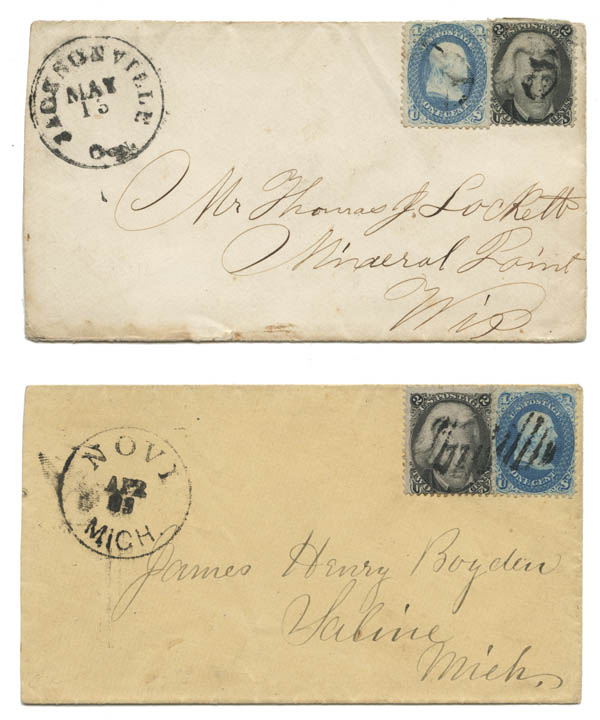 JACKSONVILLE
MAY
15
Ogn
U.S. POSTAGE
ONE CENT
2 2
U.S. POSTAGE
TWO CENTS
Mr Thomas J. Lockett
Mineral Point
Wis.
NOVI
APR
MICH
2 2
U.S. POSTAGE
TWO CENTS
U.S. POSTAGE
ONE CENT
James Henry Boyden
Saline
Mich.